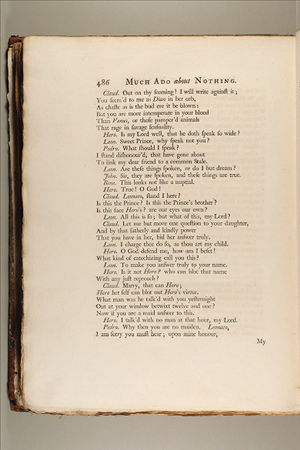 486 MUCH ADO about NOTHING.
Claud. Out on thy seeming! I will write against it;
You seem'd to me as Dian in her orb,
As chaste as is the bud ere it be blown:
But you are more intemperate in your blood
Than Venus, or those pamper'd animals
That rage in savage sensuality.
Hero. Is my Lord well, that he doth speak so wide?
Leon. Sweet Prince, why speak not you?
Pedro. What should I speak?
I stand dishonour'd, that have gone about
To link my dear friend to a common Stale.
Leon. Are these things spoken, or do I but dream?
John. Sir, they are spoken, and these things are true.
Bene. This looks not like a nuptial.
Hero. True! O God!
Claud. Leonato, stand I here?
Is this the Prince? Is this the Prince's brother?
Is this face Hero's? are our eyes our own?
Leon. All this is so; but what of this, my Lord?
Claud. Let me but move one question to your daughter,
And by that fatherly and kindly power
That you have in her, bid her answer truly.
Leon. I charge thee do so, as thou art my child.
Hero. O God defend me, how am I beset!
What kind of catechizing call you this?
Leon. To make you answer truly to your name.
Hero. Is it not Hero? who can blot that name
With any just reproach?
Claud. Marry, that can Hero;
Hero her self can blot out Hero's virtue.
What man was he talk'd with you yesternight
Out at your window betwixt twelve and one?
Now if you are a maid answer to this.
Hero. I talk'd with no man at that hour, my Lord.
Pedro. Why then you are no maiden. Leonato,
I am sorry you must hear; upon mine honour,
My